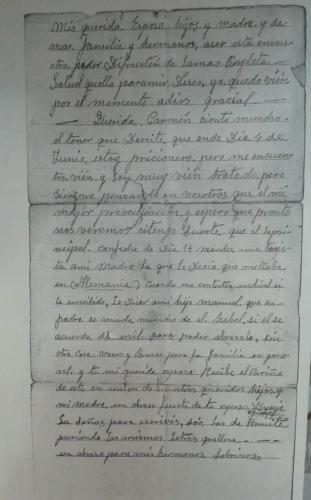 Mis querida Esposa, hijos, y madre, y de
mas, familia y hermanos, aser esta en
poder Disfruten de la mas Completa
Salud quella para mi Deseo, yo quedo vién
por el momento adios gracias.
Querida, Carmén siento mucho
el tener que Desirte, que ende Dia 4 de
Junio, estoy pricionero, pero me encuen
tro, vién, y soy muy vién tratado, pero
siempre pensando en vosotros que es mi
mayor preocupación, y espero que pronto
nos veremos si tengo suerte, que es lo prin
cipal. con fecha de Dia 14 mandes una targe
ta ami Madre La que le Decia que me llaba
en (Alemania) Cuando me contestes me dices si
la arecibido, Le Dises ami hijo manuel, que su
padre se acuerda mucho de el, si el se
acuerda de mi, para poder abrazarlo, sin
otra Cosa Veses y Brasos para la familia en gene
ral, y tu mi querida esposa Recibe el Cariño
de este en union de nuestros queridos, hijos, y
mi madre, un abraso fuerte de tu esposo
La Señas para escrivir, son las de Remite
poniendo las mismas Letras
un abraso para mis hermanos Sobrinos